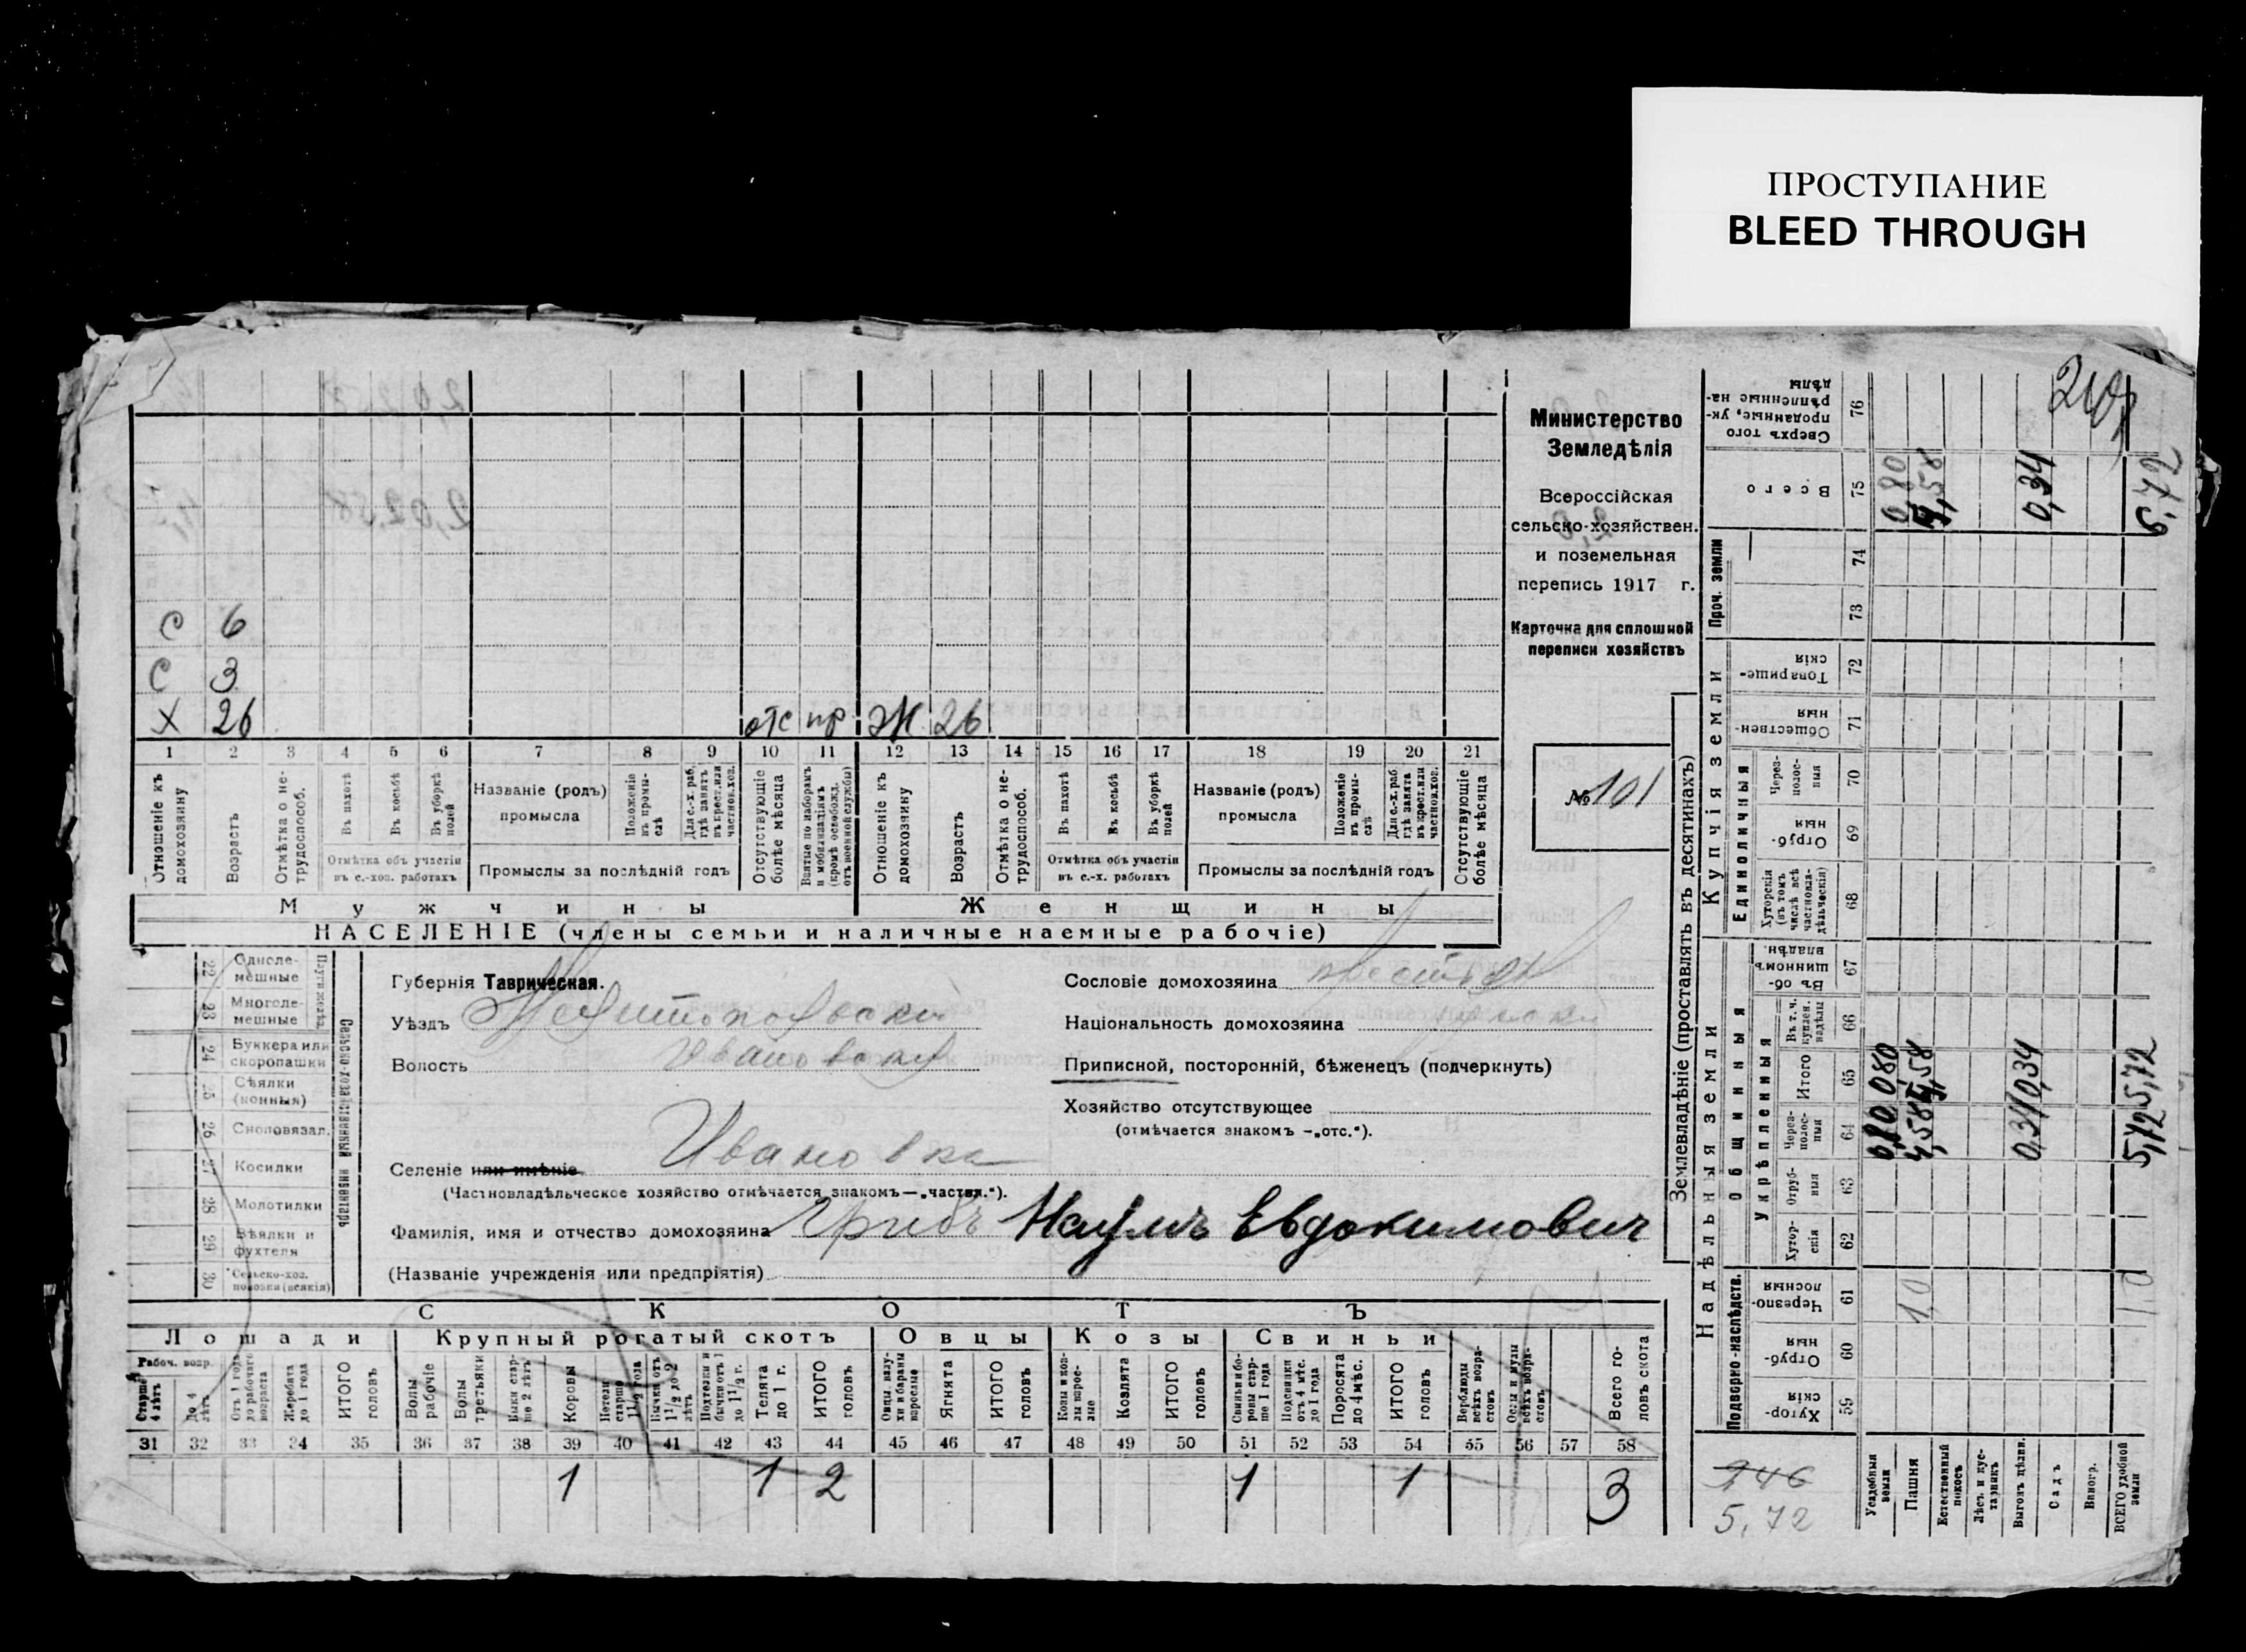 ПРОСТУПАНИЕ
BLEED THROUGH
Министерство
Земледѣлія
Всероссійская
сельско-хозяйствен.
и поземельная
перепись 1917 г.
Карточка для сплошной
переписи хозяйствъ
№ 101
С 6
С 3
Х 26 отс пр. Ж 26
1 2 3 4 5 6 7 8 9 10 11 12 13 14 15 16 17 18 19 20 21
Отношеніе къ домохозяину
Возрастъ
Отмѣтка о не-трудоспособ.
Въ пахотѣ
Въ косьбѣ
Въ уборкѣ полей
Отмѣтка объ участіи въ с.-хоз. работахъ
Названіе (родъ) промысла
Положеніе въ промы-слѣ
Для с.-х. раб. гдѣ занятъ въ крест. или частнов. хоз.
Промыслы за послѣдній годъ
Отсутствующіе болѣе мѣсяца
Взятые по наборамъ и мобилизаціямъ (кромѣ освобожд. отъ военной службы)
Отношеніе къ домохозяину
Возрастъ
Отмѣтка о не-трудоспособ.
Въ пахотѣ
Въ косьбѣ
Въ уборкѣ полей
Отмѣтка объ участіи въ с.-х. работахъ
Названіе (родъ) промысла
Положеніе въ промы-слѣ
Для с.-х. раб. гдѣ занята въ крест. или частнов. хоз.
Промыслы за послѣдній годъ
Отсутствующіе болѣе мѣсяца
Мужчины Женщины
НАСЕЛЕНІЕ (члены семьи и наличные наемные рабочіе)
22 Одноле-мешные
23 Многоле-мешные
24 Буккера или скоропашки
25 Сѣялки (конныя)
26 Сноповязал.
27 Косилки
28 Молотилки
29 Вѣялки и фухтеля
30 Сельско-хоз. повозки (всякія)
Сельско-хозяйственный инвентарь
Губернія Таврическая.
Уѣздъ Мелитопольскій
Волость Ивановская
Селеніе или имѣніе Ивановка
(Частновладѣльческое хозяйство отмѣчается знакомъ—„частвл.“).
Фамилія, имя и отчество домохозяина Грибъ Наумъ Евдокимович
(Названіе учрежденія или предпріятія)
Сословіе домохозяина
Національность домохозяина
Приписной, посторонній, бѣженецъ (подчеркнуть)
Хозяйство отсутствующее
(отмѣчается знакомъ —„отс.“).
СКОТЪ
Лошади Крупный рогатый скотъ Овцы Козы Свиньи
Рабоч. возр.
Старше 4 лѣтъ
До 4 лѣтъ
Отъ 1 года до рабочаго возраста
Жеребята до 1 года
ИТОГО головъ
Волы рабочіе
Волы третьяки
Быки стар-ше 2 лѣтъ
Коровы
Нетели старше 1 1/2 года
Бычки отъ 1 1/2 до 2 лѣтъ
Подтелки и бычки отъ 1 до 1 1/2 г.
Телята до 1 г.
ИТОГО головъ
Овцы, валу-хи и бараны взрослые
Ягнята
ИТОГО головъ
Козы и коз-лы взрос-лые
Козлята
ИТОГО головъ
Свиньи и бо-ровы стар-ше 1 года
Подсвинки отъ 4 мѣс. до 1 года
Поросята до 4 мѣс.
ИТОГО головъ
Верблюды всѣхъ возра-стовъ
Ослы и мулы всѣхъ возра-стовъ
Всего го-ловъ скота
31 32 33 34 35 36 37 38 39 40 41 42 43 44 45 46 47 48 49 50 51 52 53 54 55 56 57 58
1 1 2 1 1 3
Землевладѣніе (проставлять въ десятинахъ)
Надѣльныя земли
Купчія земли
Проч. земли
Подворно-наслѣдств.
Общинныя
Укрѣпленныя
Единоличныя
Хутор-скія 59
Отруб-ныя 60
Черезпо-лосныя 61
Хутор-скія 62
Отруб-ныя 63
Через-полос-ныя 64
Итого 65
Въ т. ч. куплен. надѣлы 66
Въ об-щинномъ владѣн. 67
Хуторскія (въ томъ числѣ всѣ частновла-дѣльческія) 68
Отруб-ныя 69
Через-полос-ныя 70
Обществен-ныя 71
Товарище-скія 72
73
74
Всего 75
Сверхъ того проданные, ук-рѣпленные на-дѣлы 76
Усадебныя земли 0,80 0,80
Пашня 1,0 4,58 4,58 4,58
Естественный покосъ
Лѣсъ и кус-тарникъ
Выгонъ цѣлин. 0,34 0,34 0,34
Садъ
Виногр.
ВСЕГО удобной земли 5,72 5,72
5,72